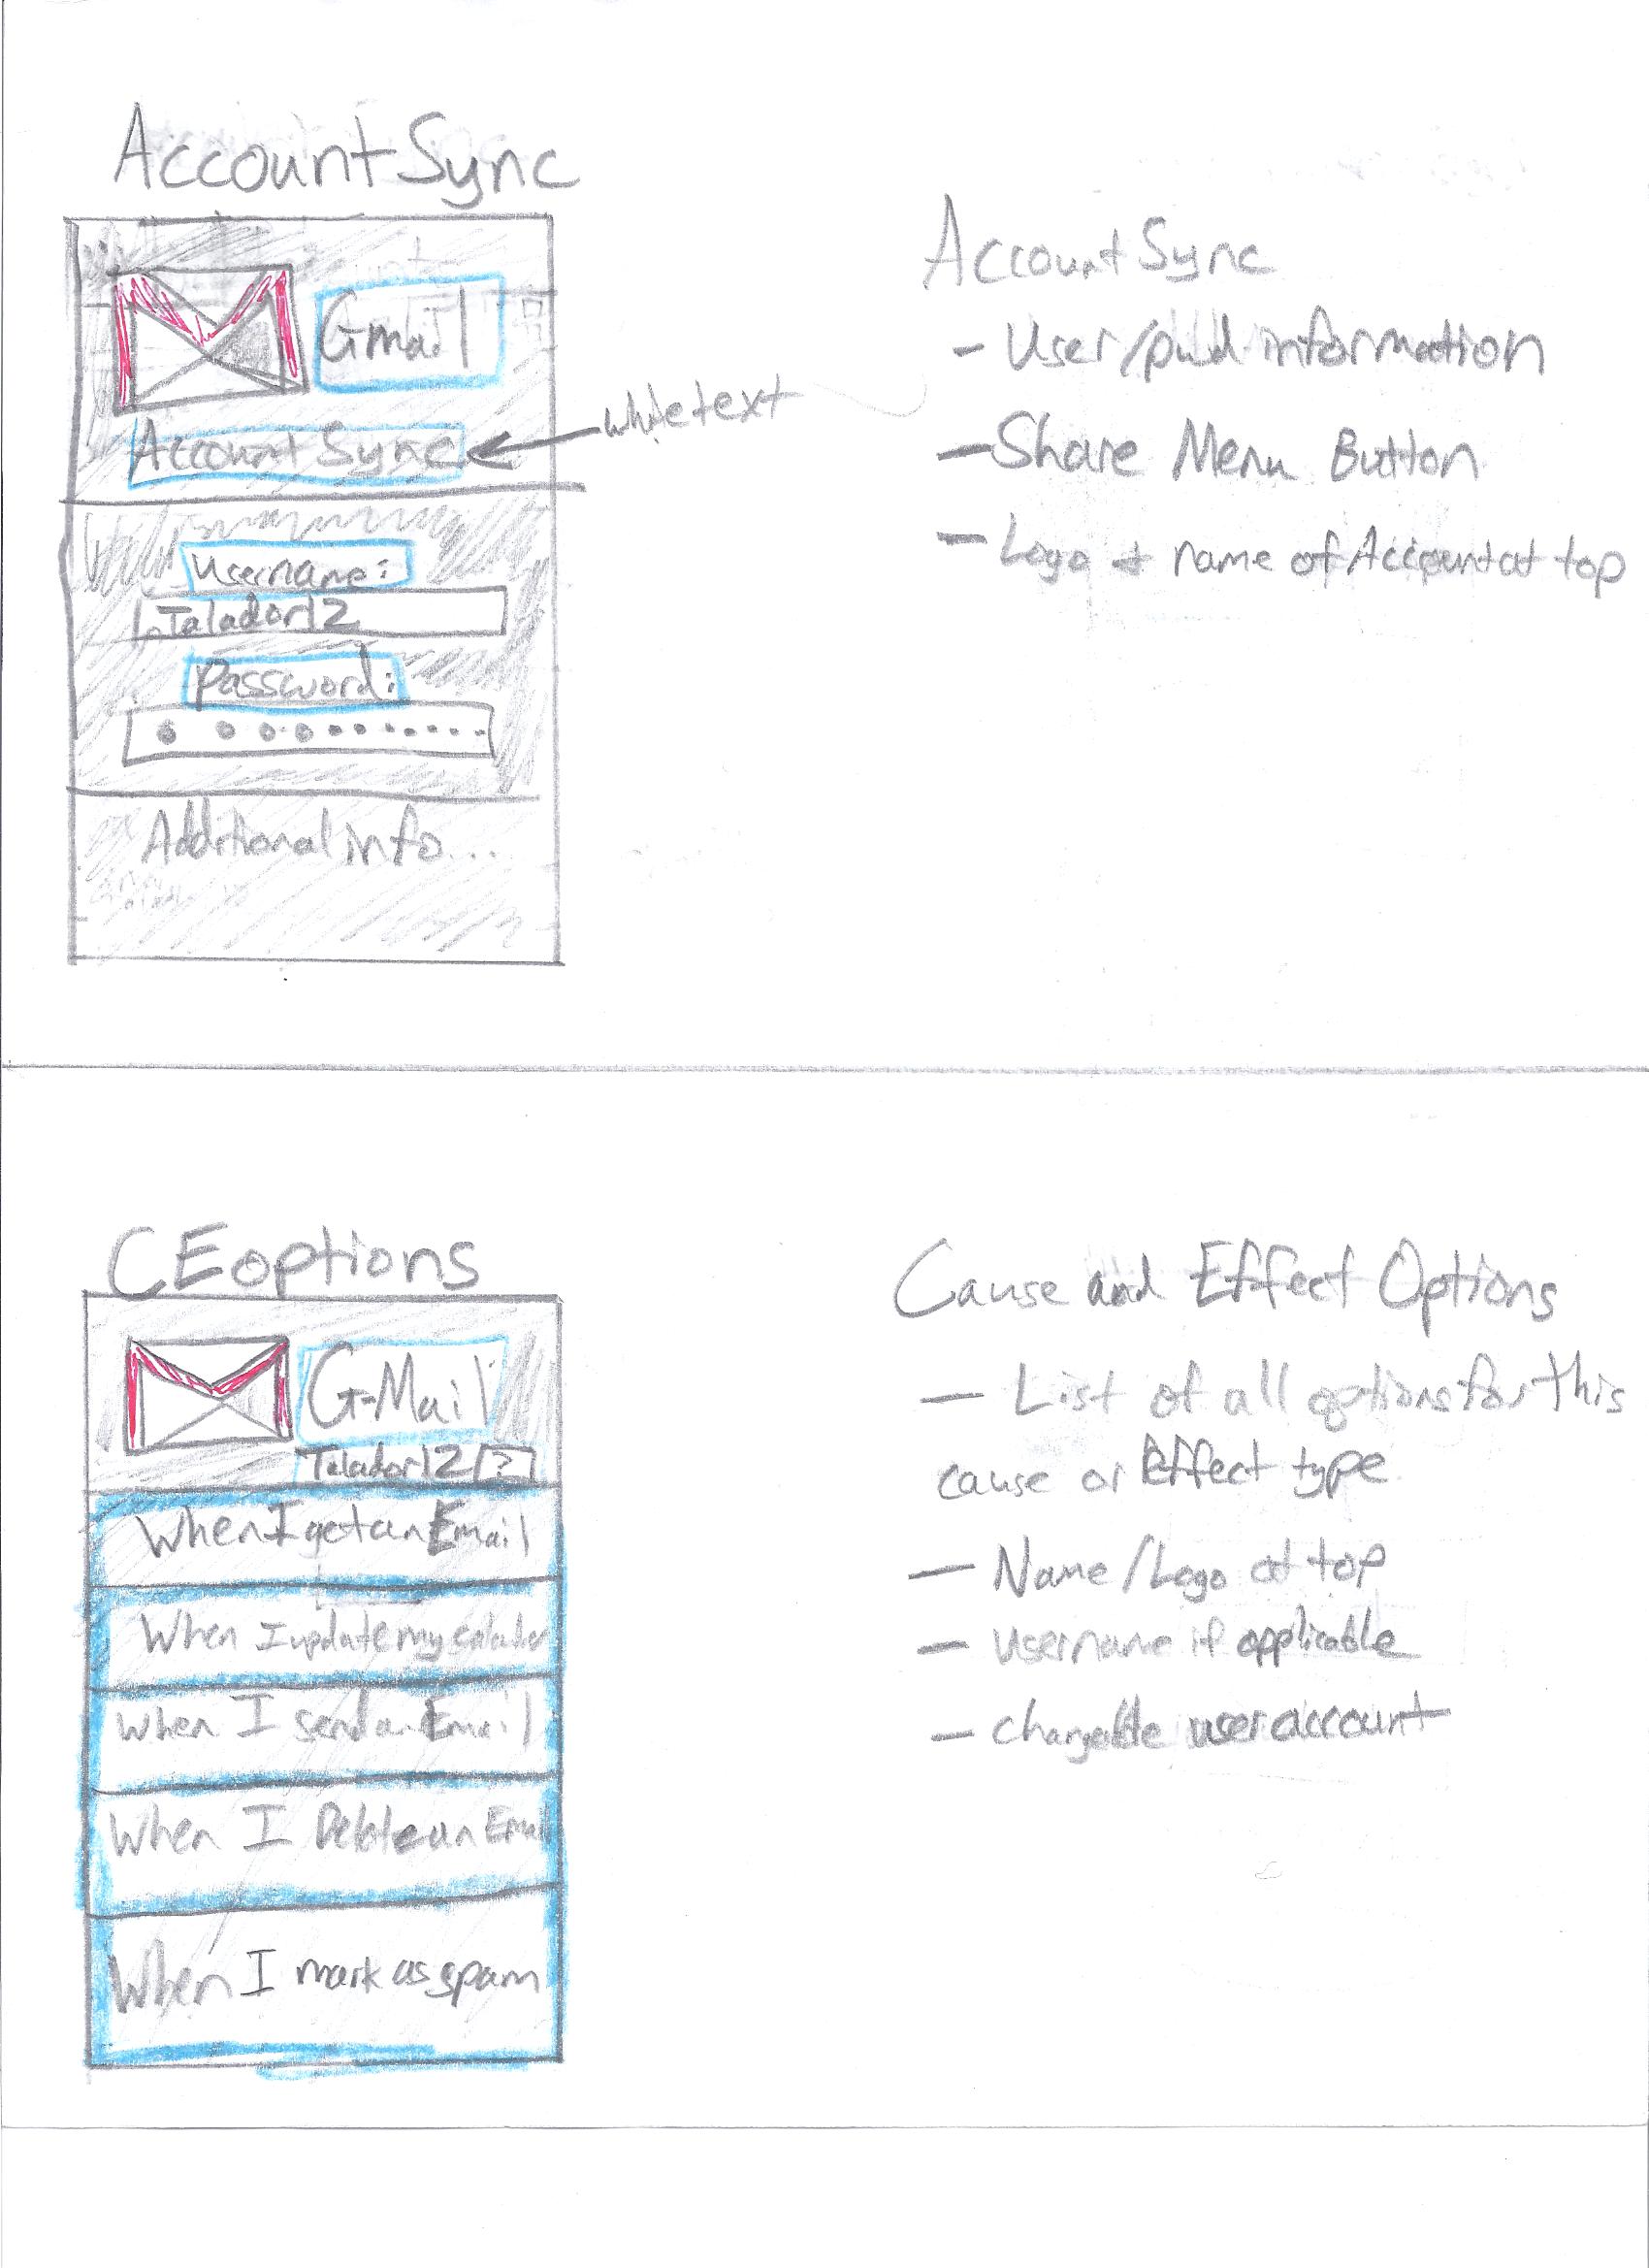 Account Sync
Gmail
Account Sync
white text
Username:
Talador12
Password:
Additional info...
Account Sync
- User/pwd information
- Share Menu Button
- Logo + name of Account at top
CEoptions
G-Mail
Talador12 ?
When I get an Email
When I update my
When I send an Email
When I Delete an Email
When I mark as spam
Cause and Effect Options
- List of all options for this
cause or Effect type
- Name/Logo at top
- username if applicable
- changeable user account